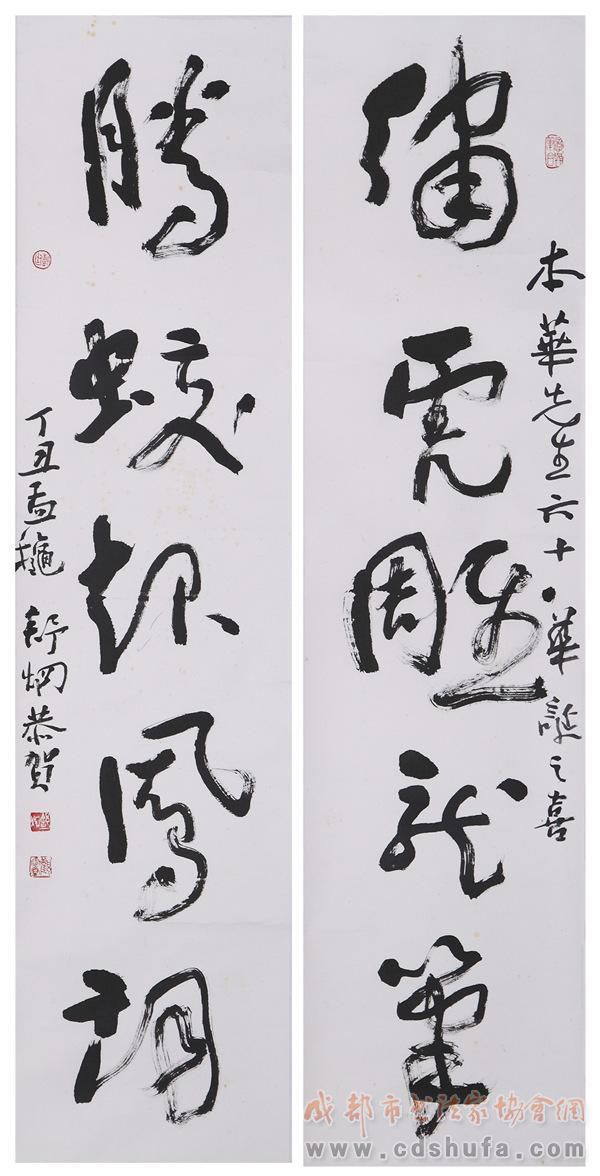 繡虎雕龍筆
本華先生六十華誕之喜
騰蛟起鳳詞
丁丑孟穐 舒炯恭賀
成都市书法家協會網
www.cdshufa.com